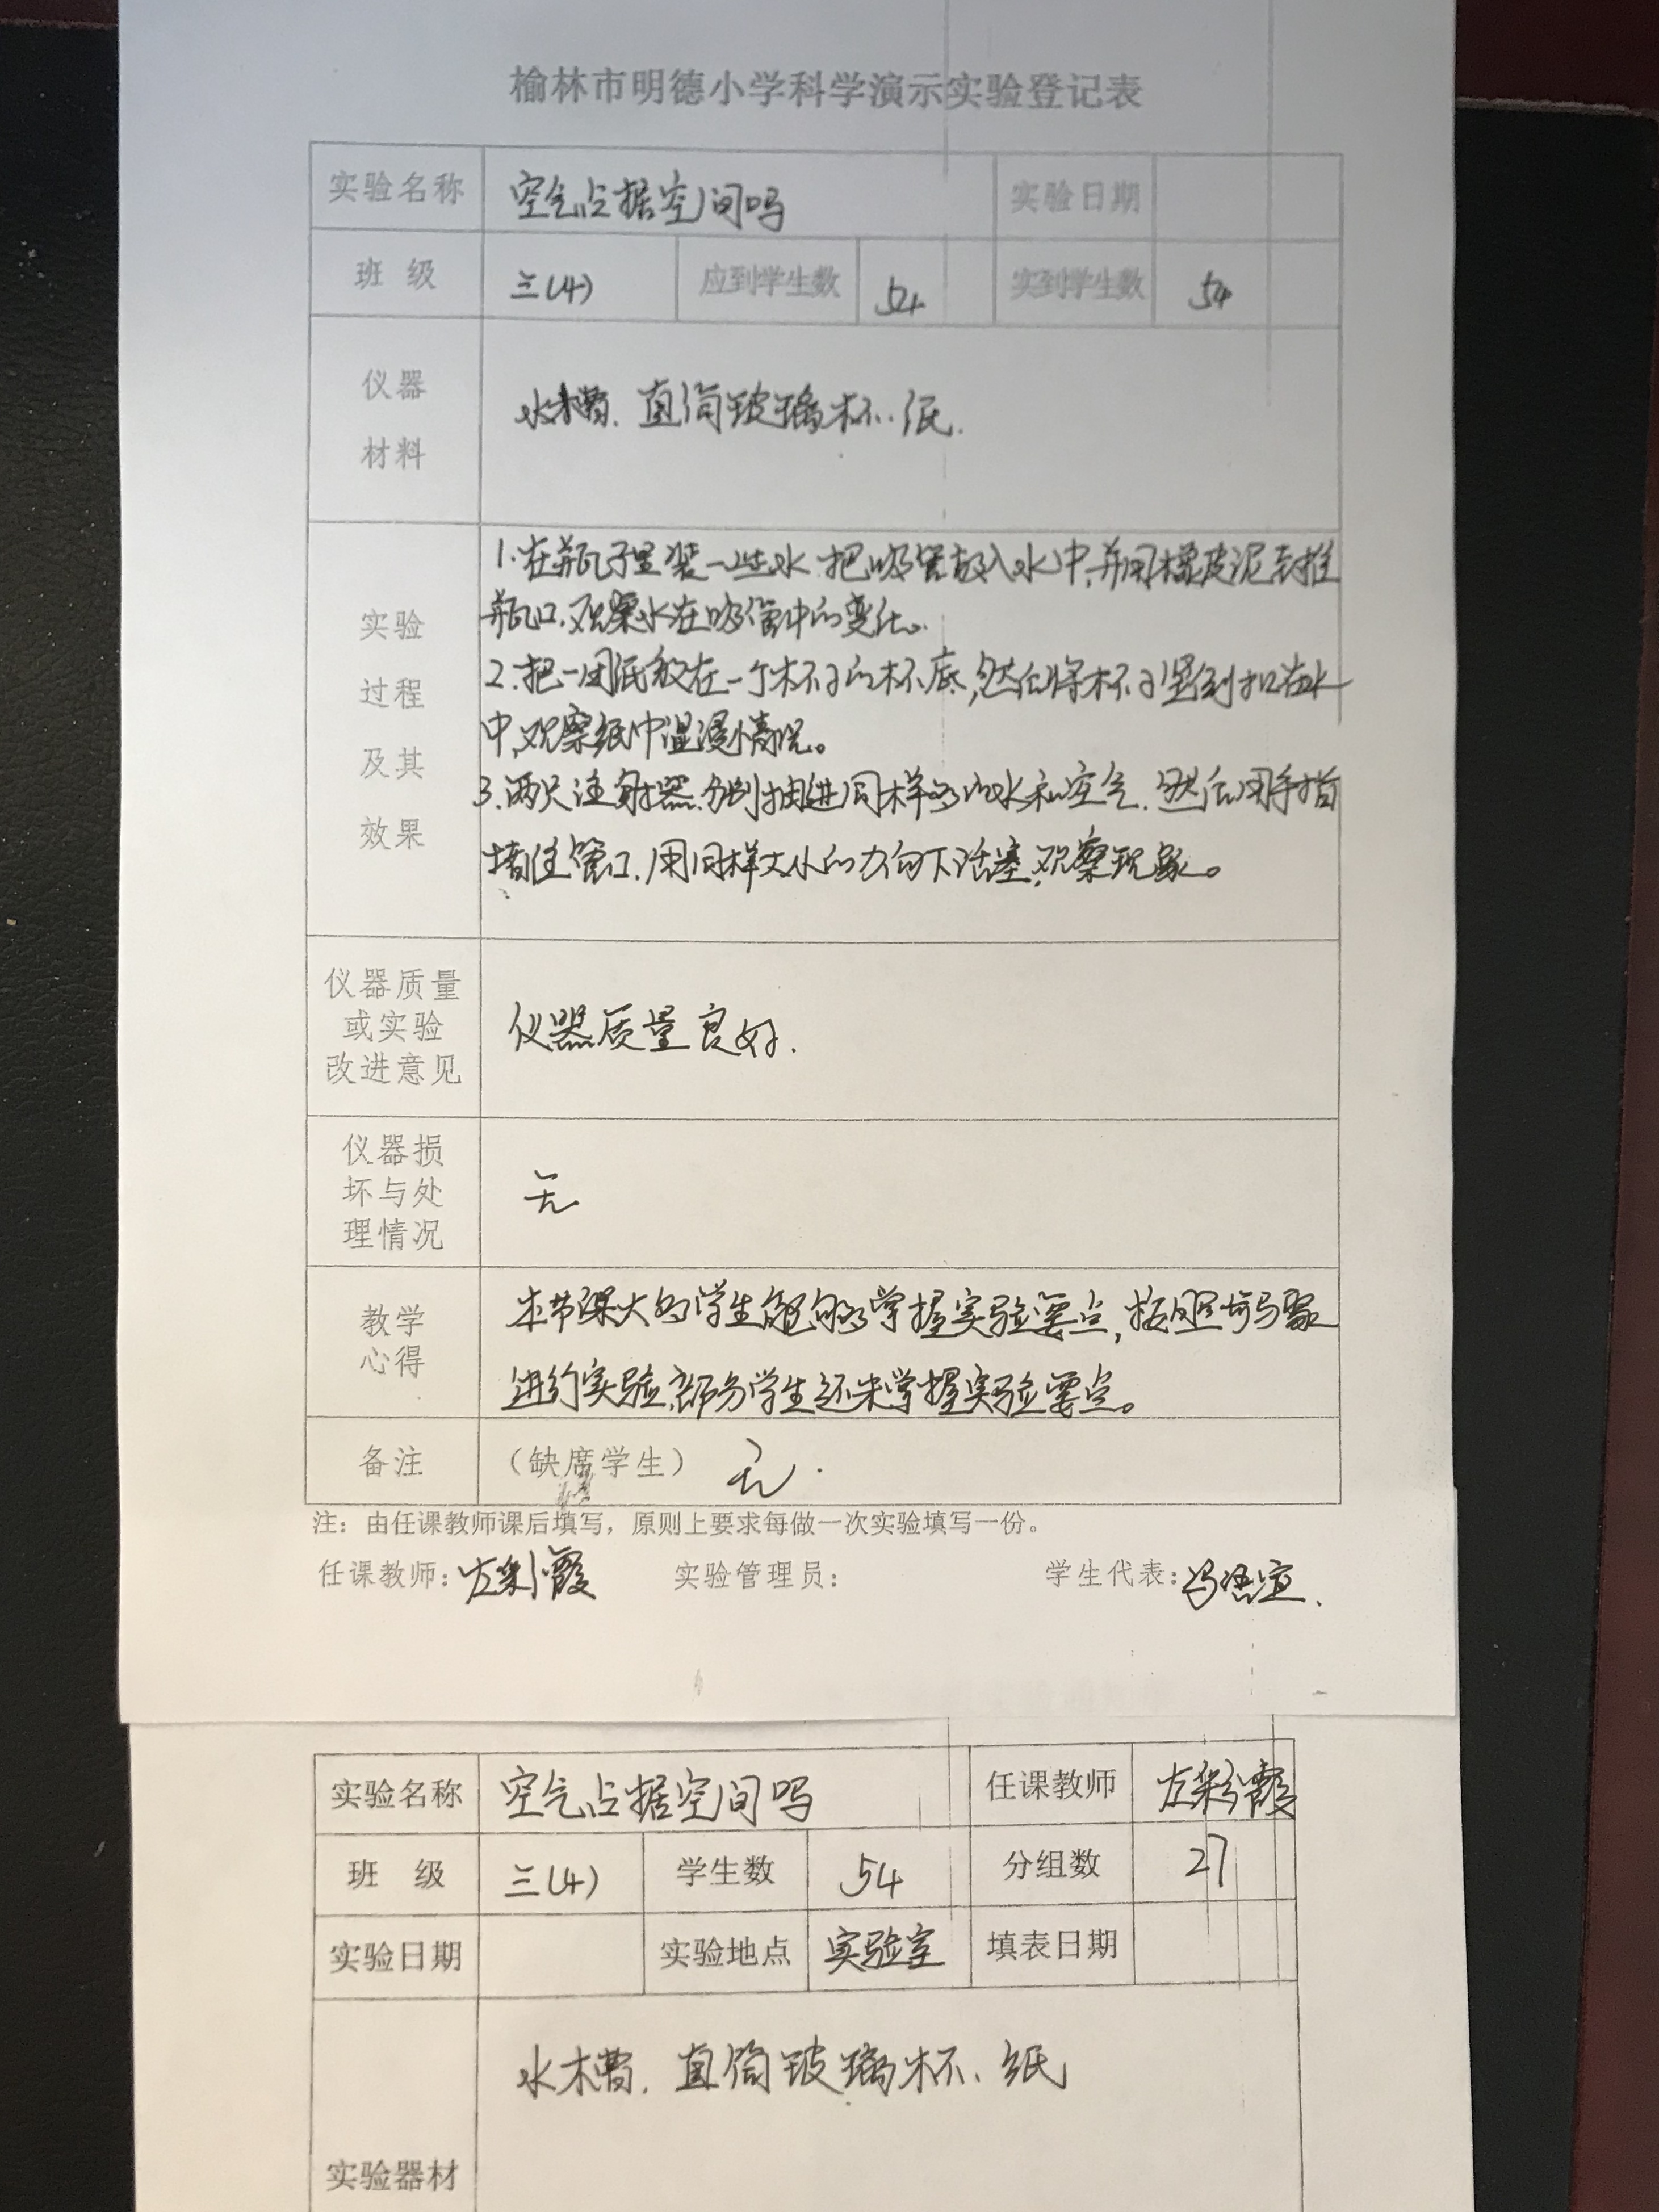 榆林市明德小学科学演示实验登记表
实验名称 空气占据空间吗 实验日期
班 级 三(4) 应到学生数 54 实到学生数 54
仪器
材料
水槽、直筒玻璃杯、纸.
实验
过程
及其
效果
1.在瓶子里装一些水.把吸管放入水中,并用橡皮泥封
瓶口,观察水在吸管中的变化。
2.把一团纸放在一个杯子的杯底,然后将杯子竖直倒扣在水
中,观察纸巾温湿情况。
3.两只注射器,分别抽进同样多的水和空气.然后用手指
堵住管口.用同样大小的力向下活塞,观察现象。
仪器质量
或实验
改进意见
仪器质量良好.
仪器损
坏与处
理情况
无
教学
心得
本节课大多学生能够掌握实验要点,按照步骤
进行实验,部分学生还未掌握实验要点。
备注 （缺席学生） 无.
注：由任课教师课后填写，原则上要求每做一次实验填写一份。
任课教师：左彩霞 实验管理员： 学生代表：冯
实验名称 空气占据空间吗 任课教师 左彩霞
班 级 三(4) 学生数 54 分组数 27
实验日期 实验地点 实验室 填表日期
水槽、直筒玻璃杯、纸
实验器材